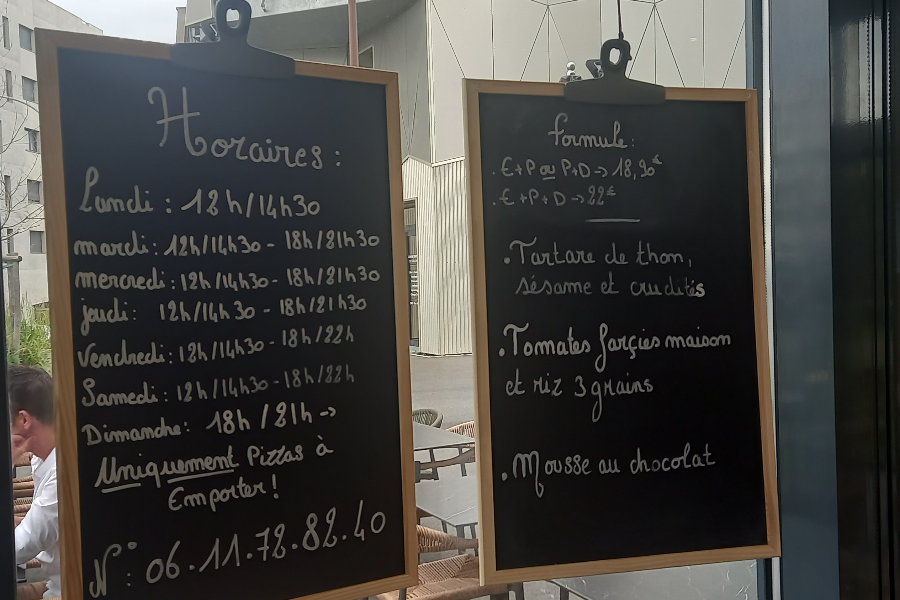 Horaires :
Lundi : 12h/14h30
mardi : 12h/14h30 - 18h/21h30
mercredi : 12h/14h30 - 18h/21h30
jeudi : 12h/14h30 - 18h/21h30
Vendredi : 12h/14h30 - 18h/22h
Samedi : 12h/14h30 - 18h/22h
Dimanche : 18h/21h →
Uniquement Pizzas à
Emporter !
N° : 06.11.72.82.40
formule :
. E+P ou P+D → 18,90€
. E+P+D → 22€
. Tartare de thon,
sésame et crudités
. Tomates farçies maison
et riz 3 grains
. Mousse au chocolat